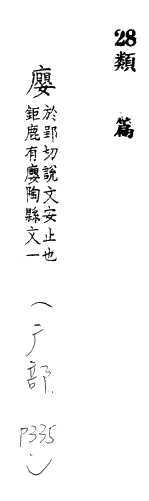 28類篇
廮
於郢切說文安止也
鉅鹿有廮陶縣文一
(广部.P335)